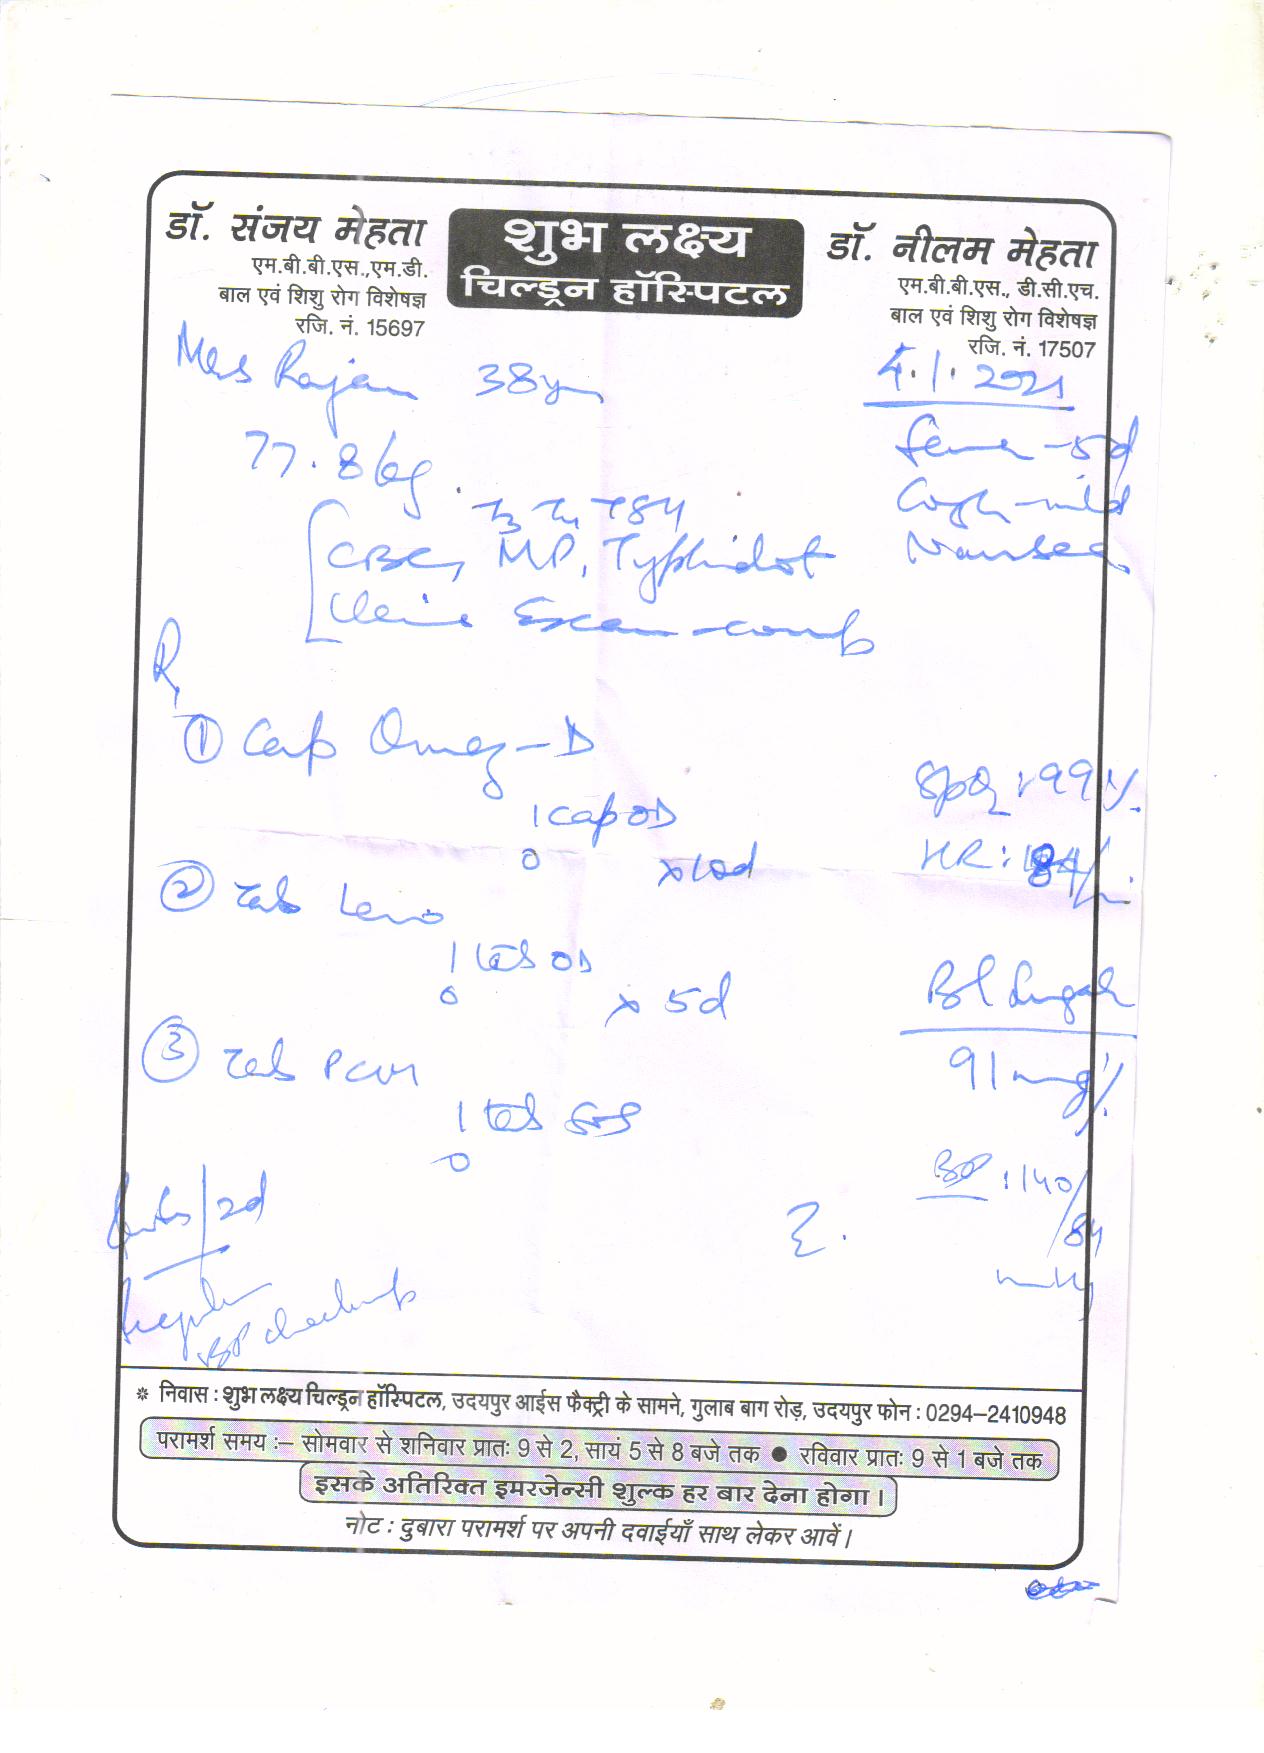 डॉ. संजय मेहता
एम.बी.बी.एस.,एम.डी.
बाल एवं शिशु रोग विशेषज्ञ
रजि. नं. 15697
शुभ लक्ष्य
चिल्ड्रन हॉस्पिटल
डॉ. नीलम मेहता
एम.बी.बी.एस., डी.सी.एच.
बाल एवं शिशु रोग विशेषज्ञ
रजि. नं. 17507
Mrs Rajan 38yrs
4.1.2021
77.8 kg
Fever - 5d
Cough - mild
Nausea
T3 T4 TSH
CBC, MP, Typhidot
Urine Exam - comp
R
① Cap Omez-D
1 cap OD
x 10d
SpO2 : 99%.
HR : 84/
② Tab Levo
1 tab OD
x 5d
Bl Sugar
91 mg%
③ Tab PCM
1 tab SOS
BP : 140/84
mmHg
/2d
Regular
BP checkup
* निवास : शुभ लक्ष्य चिल्ड्रन हॉस्पिटल, उदयपुर आईस फैक्ट्री के सामने, गुलाब बाग रोड़, उदयपुर फोन : 0294–2410948
परामर्श समय :– सोमवार से शनिवार प्रातः 9 से 2, सायं 5 से 8 बजे तक ● रविवार प्रातः 9 से 1 बजे तक
इसके अतिरिक्त इमरजेन्सी शुल्क हर बार देना होगा।
नोट : दुबारा परामर्श पर अपनी दवाईयाँ साथ लेकर आवें।